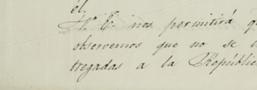 el
V. E. nos permitirá q
observemos que no se
tregadas a la Repúblic